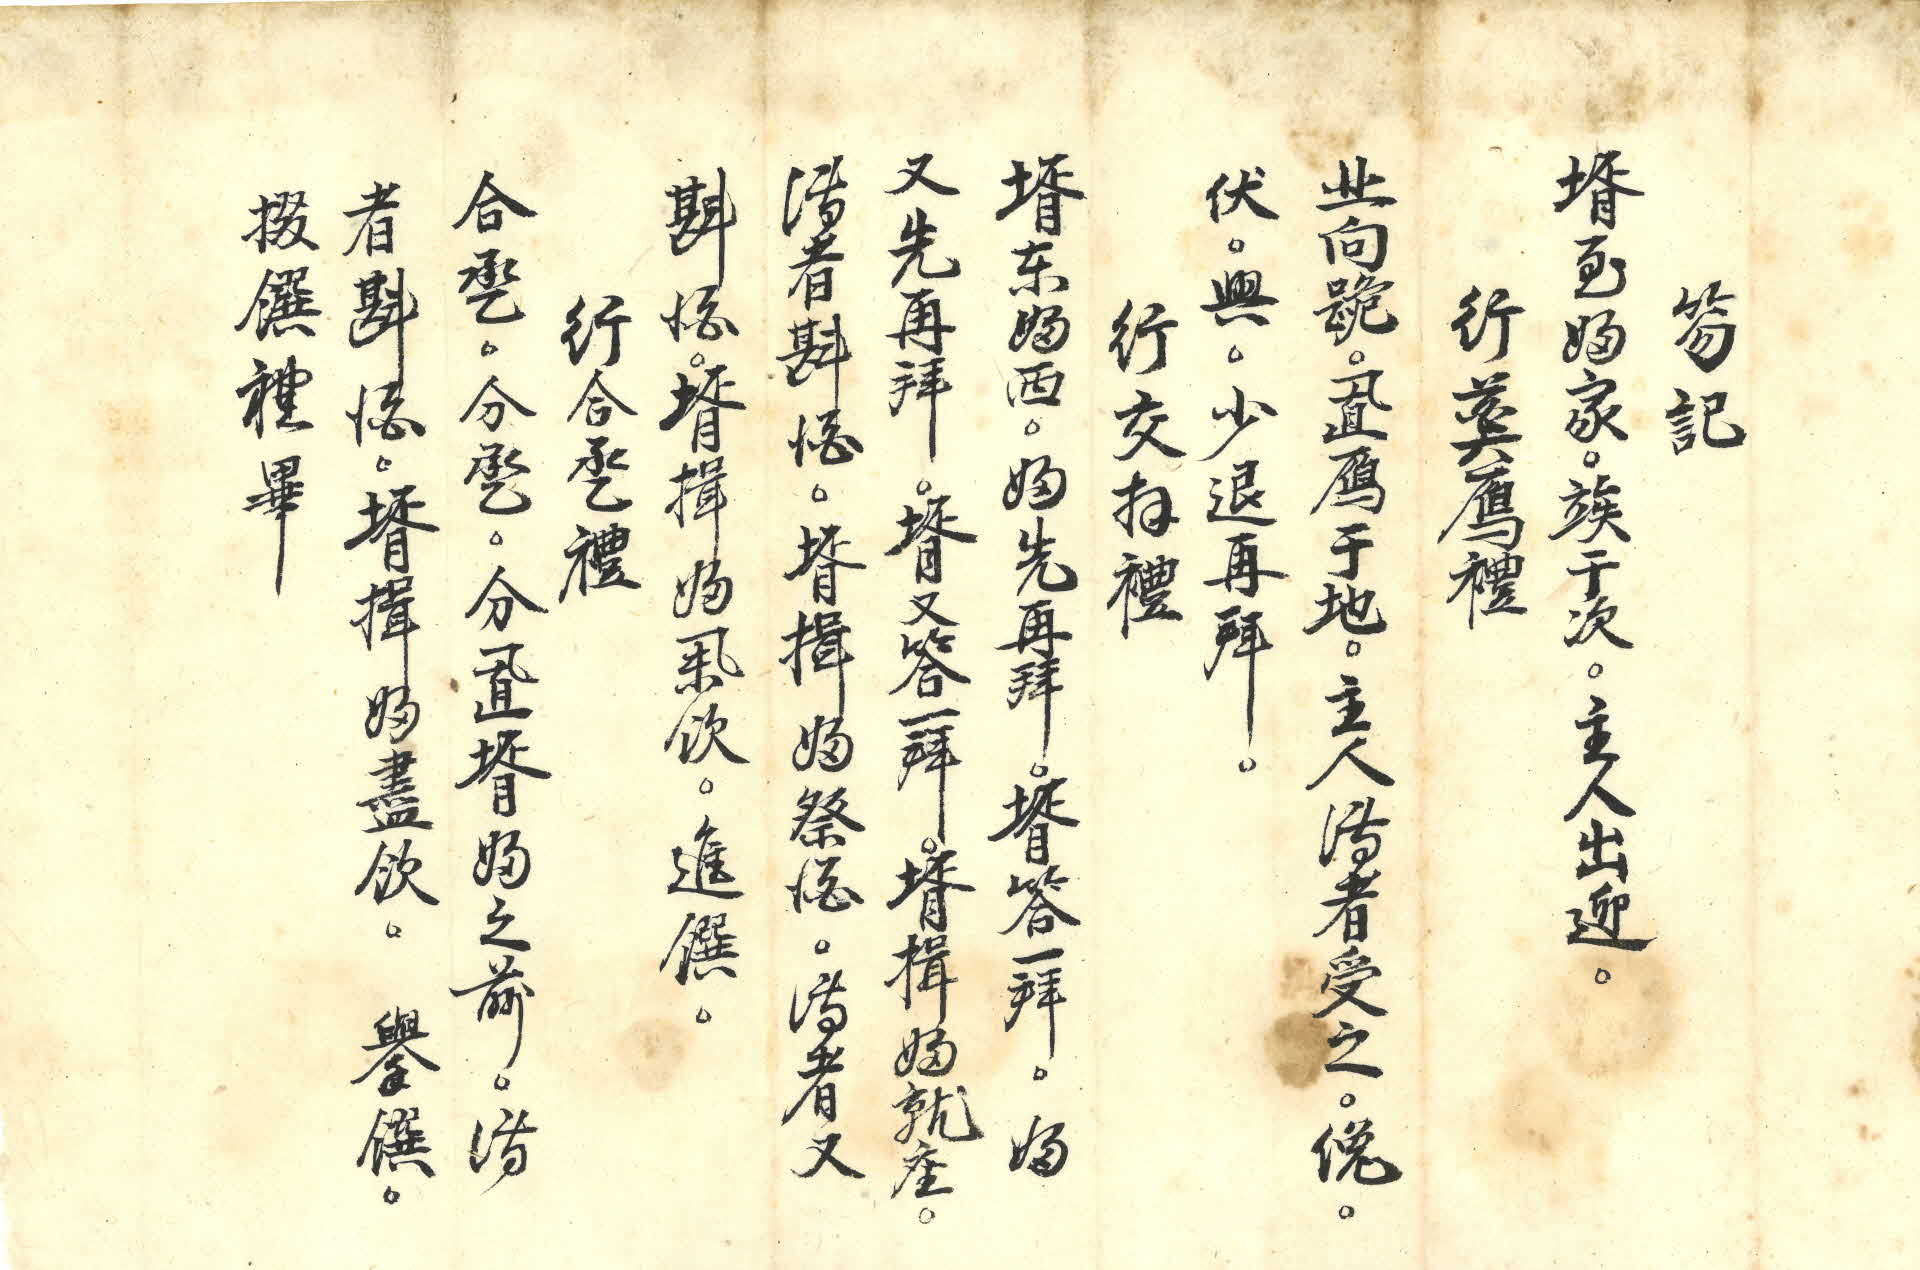 笏記
壻至婦家。竢于次。主人出迎。
行奠鴈禮
北向跪。置鴈于地。主人侍者受之。俛
伏。興。少退再拜。
行交拜禮
壻東婦西。婦先再拜。壻答一拜。婦
又先再拜。壻又答一拜。壻揖婦就座。
侍者斟酒。壻揖婦祭酒。侍者又
斟酒。壻揖婦飮。進饌。
行合巹禮
合巹。分巹。分置壻婦之前。侍
者斟酒。壻揖婦盡飮。擧饌。
掇饌禮畢